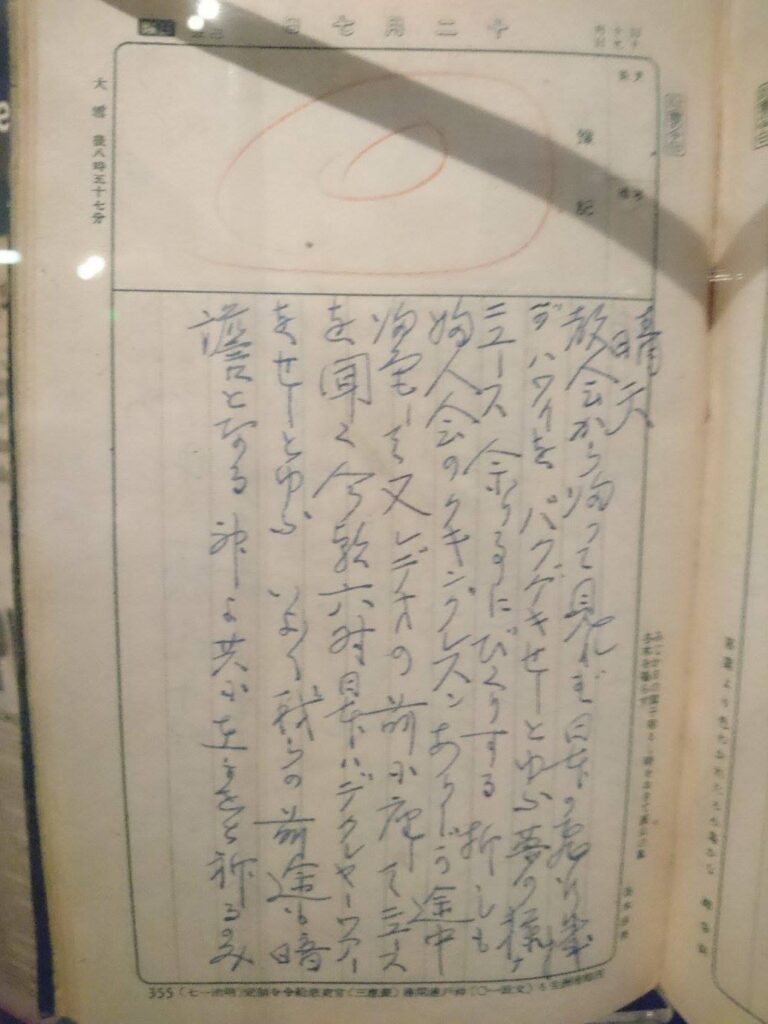 十二月七日
豫記
晴天
教会から帰って見れば日本の飛行機
がハワイをバクゲキせしとゆふ夢の様ナ
ニュース 余りにびくりする 折しも
婦人会のクキングレスンありしが途中
帰宅して又レデオの前に座してニュース
を聞く 今朝六時日本ハデクレヤーウアー
をせしとゆふ いよ〱我らの前途も暗
澹となる 神よ共に在ませと祈るのみ
大雪 後八時五十七分
355